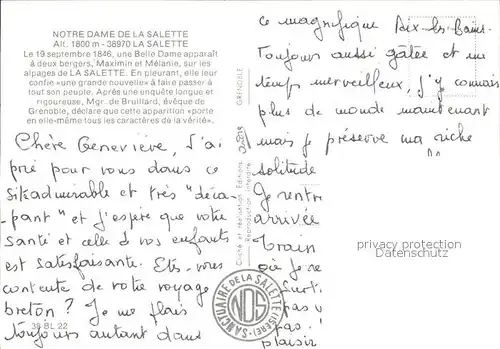 NOTRE DAME DE LA SALETTE
Alt. 1800 m - 38970 LA SALETTE
Le 19 septembre 1846, une Belle Dame apparaît
à deux bergers, Maximin et Mélanie, sur
les alpages de LA SALETTE. En pleurant, elle leur
confie «une grande nouvelle» à faire passer à
tout son peuple. Après une enquête longue et
rigoureuse, Mgr. de Bruillard, évêque de
Grenoble, déclare que cette apparition «porte
en elle-même tous les caractères de la vérité».
Chère Geneviève, J'ai
prié pour vous dans ce
site admirable et très "déca-
pant" et j'espère que votre
santé et celle d vos enfants
est satisfaisante. Etes-vous
contente de votre voyage
breton ? Je me plais
toujours autant dans
38 BL 22
Cliché et réalisation Editions
Reproduction interdite
GRENOBLE
SANCTUAIRE DE LA SALETTE (ISÈRE)
NDS
ce magnifique Aix-les-Bains.
Toujours aussi gâtée et un
temps merveilleux, j'y connais
plus de monde maintenant
mais je préserve ma riche
solitude
Je rentre
arrivée
train
où je re
Surt
pas v
pas.
plaisir
privacy protection
Datenschutz